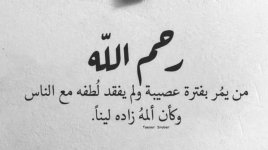 رحم الله
من يمُر بفترة عصيبة ولم يفقد لُطفه مع الناس
وكأن ألمهُ زاده ليناً.